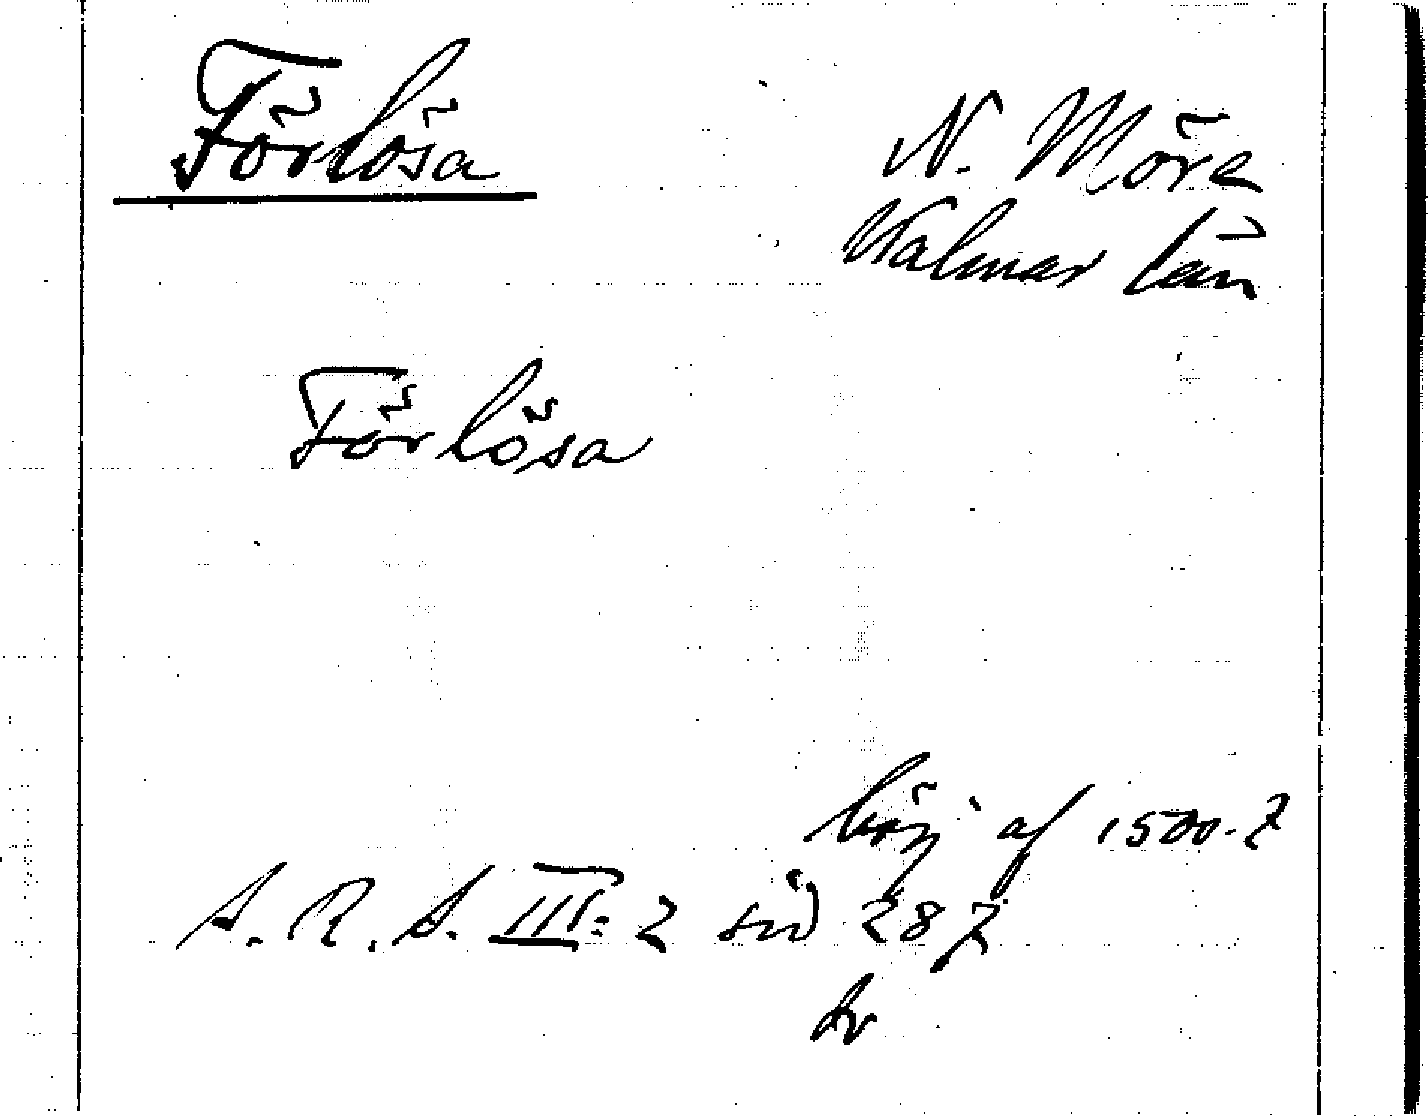 Förlösa
N. Möre
Kalmar län
Förlösa
börj af 1500-t
S. R. S. III:2 sid 287
hr